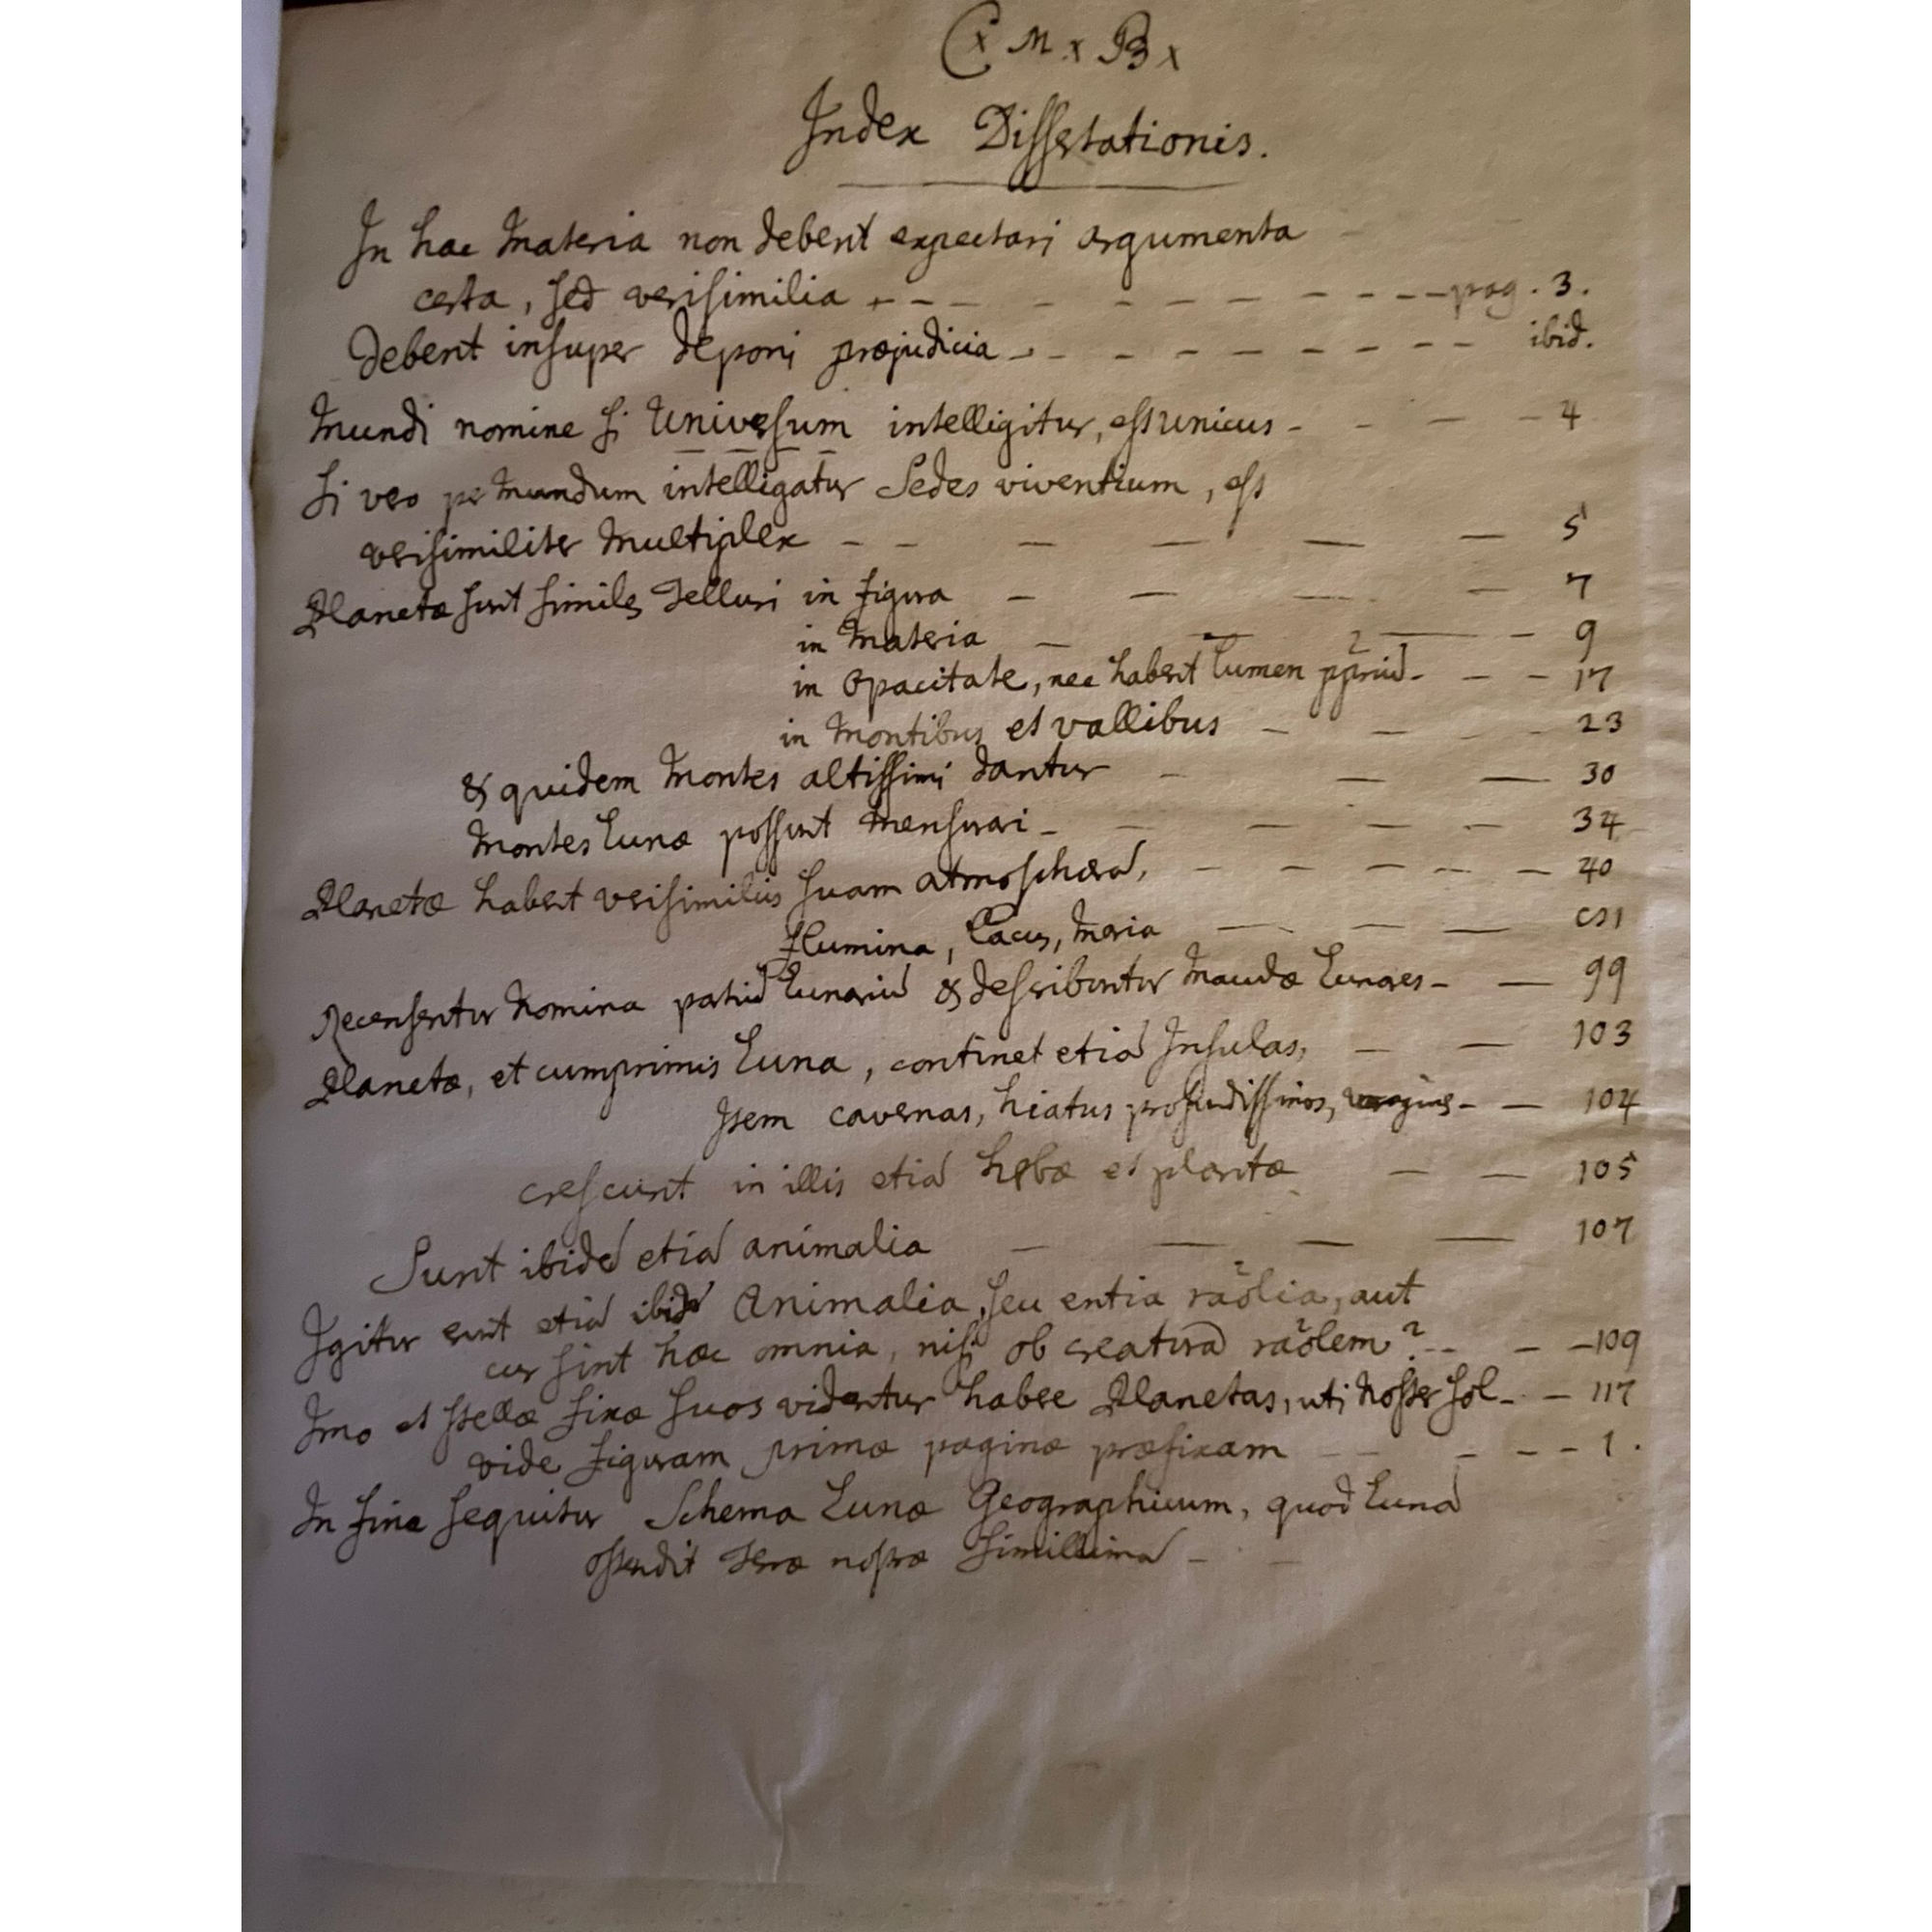 C x M x B x
Index Dissertationis.
In hac Materia non debent expectari argumenta
certa, sed verisimilia - - - - - - - - - - pag. 3.
Debent insuper deponi præjudicia - - - - - - - - ibid.
Mundi nomine si Universum intelligitur, est unicus - - - - 4
Si vero per Mundum intelligatur Sedes viventium, est
verisimiliter Multiplex - - - - - - 5
Planetæ sunt similes Telluri in figura - - - - 7
in Materia - - - - 9
in Opacitate, nec habent lumen ppriū - - - 17
in Montibus et vallibus - - - - 23
& quidem Montes altissimi dantur - - - 30
Montes Lunæ possunt Mensurari - - - - - 34
Planetæ habent verisimilius suam atmosphærā, - - - - - - 40
Flumina, Lacus, Maria - - -
Recensentur Nomina partiū Lunariū & describuntur Maculæ Lunares - - 99
Planetæ, et cumprimis Luna, continet etiā Insulas, - - 103
Item cavernas, hiatus profundissimos, - - 104
crescunt in illis etiā herbæ et plantæ - - 105
Sunt ibidē etiā animalia - - - - 107
Igitur erunt etiā ibidē Animalia, seu entia raõlia, aut
cur sint hæc omnia, nisi ob creaturā raõlem? - - - 109
Imo et stellæ fixæ suos videntur habere Planetas, uti noster sol - - 117
vide figuram primæ paginæ præfixam - - - - - 1.
In fine sequitur Schema Lunæ Geographicum, quod Lunā
ostendit Terræ nostræ simillimā - -